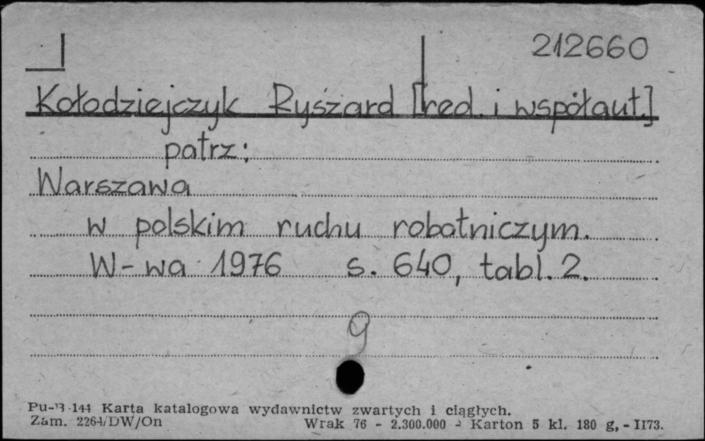 212660
Kołodziejczyk Ryszard [red. i współaut.]
patrz:
Warszawa
w polskim ruchu robotniczym.
W-wa 1976 s. 640, tabl. 2.
9
Pu-B-144 Karta katalogowa wydawnictw zwartych i ciągłych.
Zam. 2264/DW/On Wrak 76 - 2.300.000 - Karton 5 kl. 180 g, - II73.